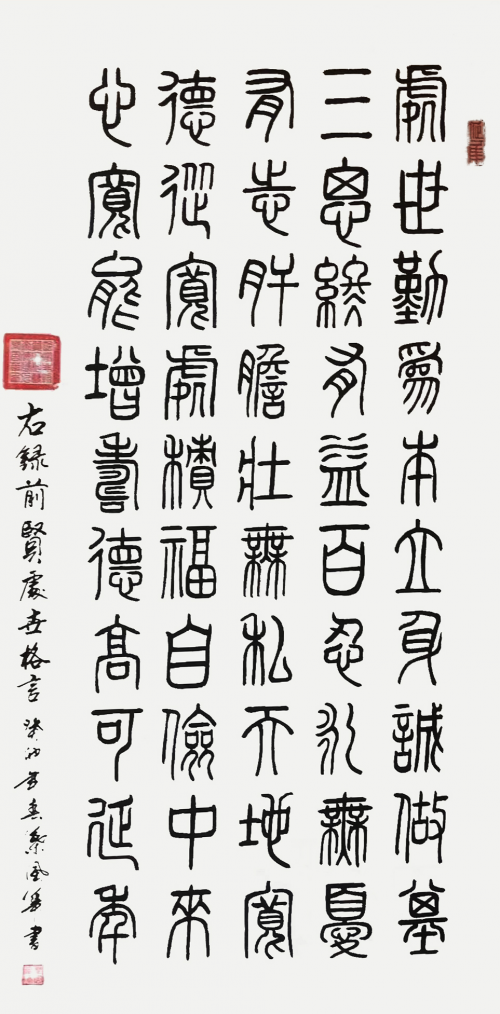 處世勤為本立身誠做基
三思終有益百忍永無憂
有志肝膽壯無私天地寬
德從寬處積福自儉中來
心寬能增壽德高可延年
右錄前賢處世格言癸卯春風華書